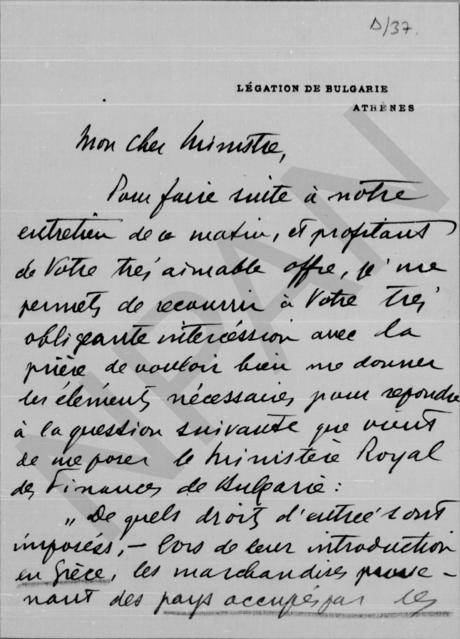 D/37.
LÉGATION DE BULGARIE
ATHÈNES
Mon cher Ministre,
Pour faire suite à notre
entretien de ce matin, et profitant
de Votre très aimable offre, je me
permets de recourrir à Votre très
obligeante intercéssion avec la
prière de vouloir bien me donner
les éléments nécessaires pour repondre
à la question suivante que vient
de me poser le Ministère Royal
des Finances de Bulgarie:
"De quels droits d'entrée sont
imposés, – lors de leur introduction
en Grèce, les marchandises prove-
nant des pays occupés par les
NPAN